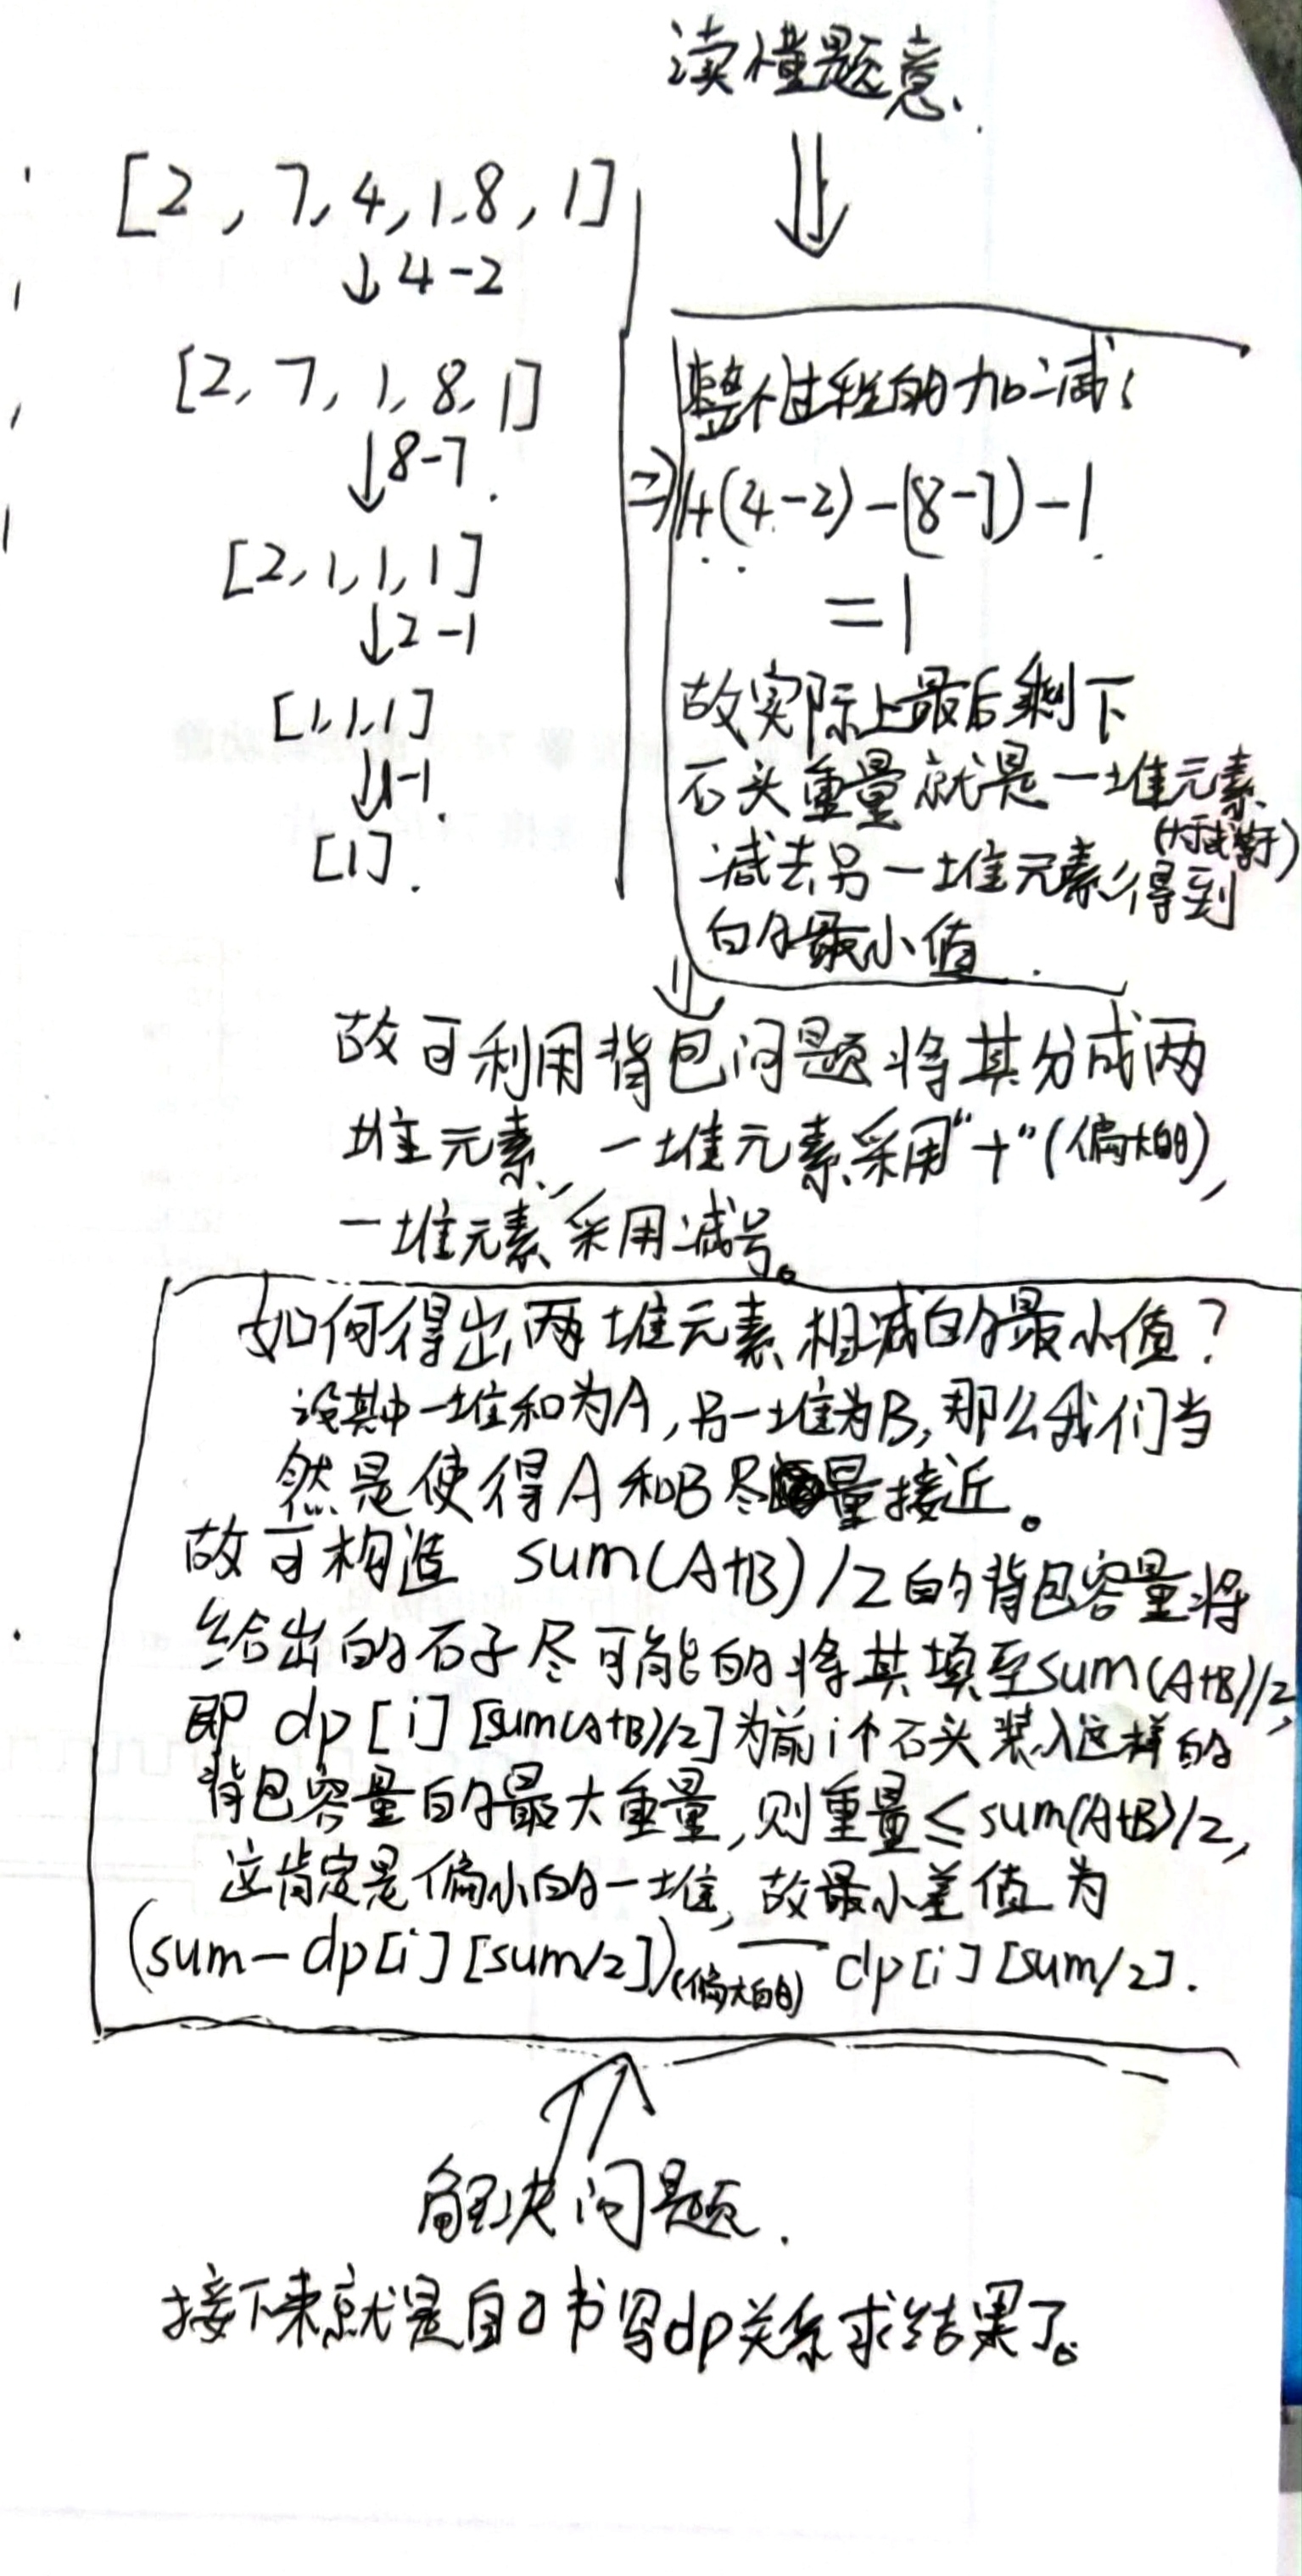 读懂题意.
[2,7,4,1,8,1]
↓4-2
[2,7,1,8,1]
↓8-7.
[2,1,1,1]
↓2-1
[1,1,1]
↓1-1.
[1].
整个过程的加减:
⇒1+(4-2)-(8-7)-1
=1
故实际上最后剩下
石头重量就是一堆元素
(大于或等于)
减去另一堆元素得到
的最小值.
故可利用背包问题将其分成两
堆元素,一堆元素采用“+”(偏大的),
一堆元素采用减号。
如何得出两堆元素相减的最小值?
设其中一堆和为A,另一堆为B,那么我们当
然是使得A和B尽量接近。
故可构造 sum(A+B)/2的背包容量将
给出的石子尽可能的将其填至sum(A+B)/2,
即dp[i][sum(A+B)/2]为前i个石头装入这样的
背包容量的最大重量,则重量≤sum(A+B)/2,
这肯定是偏小的一堆,故最小差值为
(sum-dp[i][sum/2])(偏大的)-dp[i][sum/2].
解决问题.
接下来就是自己书写dp关系求结果了。